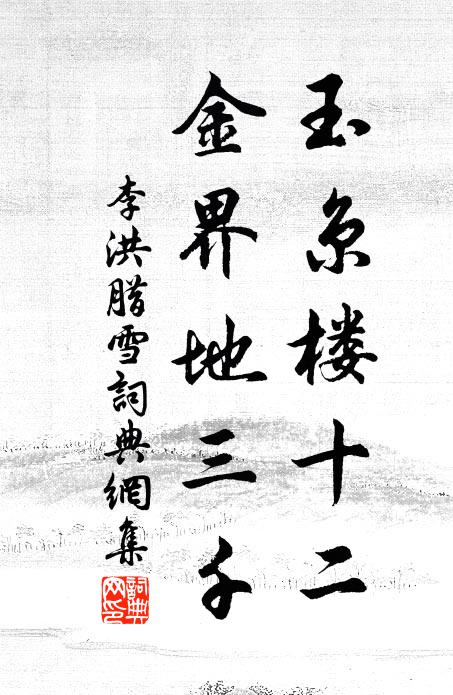 玉京楼十二
金界地三千
李洪腊雪詞典網集
詞典
网印